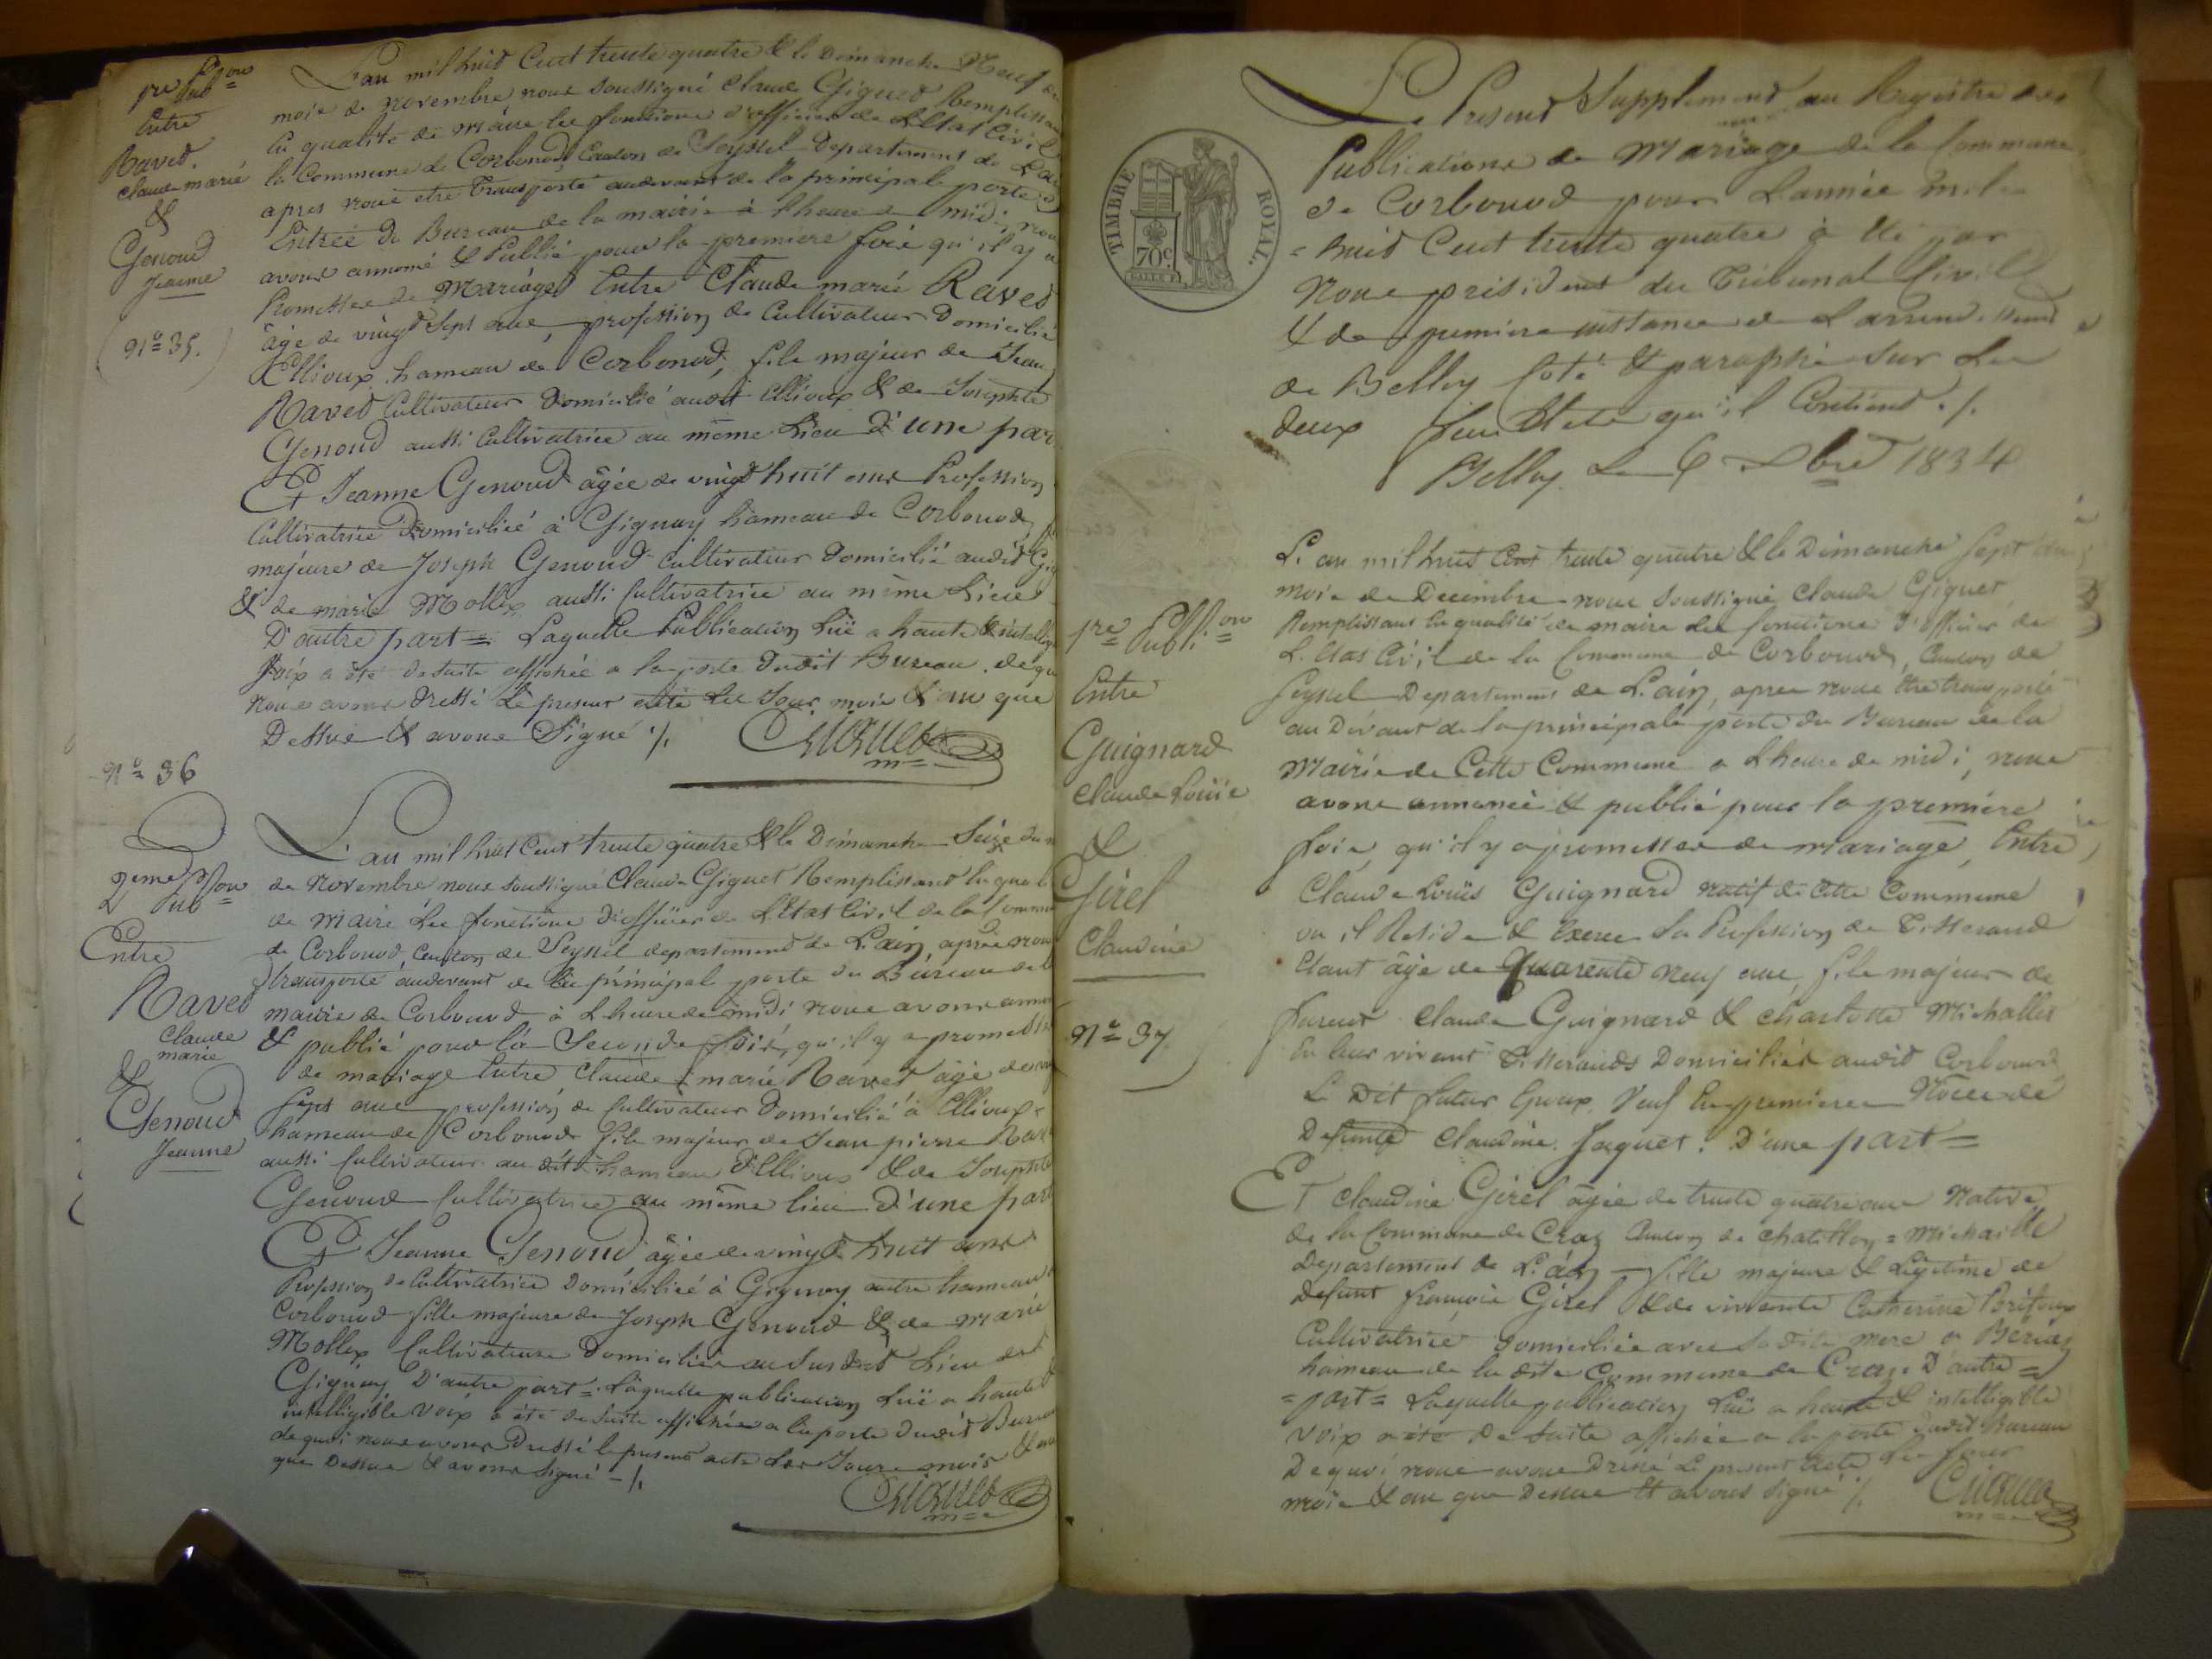 1re Pub.on
Entre
Raved.
claude marie
&
Genoud
Jeanne
No 35.
L'an mil huit Cent trente quatre & le Dimanche Neuf du
mois de novembre, nous soussigné Claude Giguet Remplissant
la qualité de maire les fonctions d'officier de L'Etat Civil
la Commune de Corbonod, Canton de Seyssel Departement de L'ain
apres nous etre transporté audevant de la principale porte d
Entrée du Bureau de la mairie à l'heure de midi, nous
avons annoncé & Publié pour la premiere fois qu'il y a
Promesses de Mariage Entre Claude marie Raved
âgé de vingt Sept ans, profession de Cultivateur Domicilié
Ellioux hameau de Corbonod, fils majeur de Jean
Raved Cultivateur Domicilié audit Ellioux & de Josephte
Genoud aussi Cultivatrice au même Lieu D'une par
Et Jeanne Genoud âgée de vingt huit ans Profession
Cultivatrice Domiciliée à Gignay hameau de Corbonod, fi
majeure de Joseph Genoud Cultivateur Domicilié audit Gig
& de marie Mollex aussi Cultivatrice au même Lieu
D'autre part = Laquelle Publication Luë a haute & intellig
Voix a été de suite affichée a la porte dudit Bureau. de qu
nous avons Dressé Le present acte Les Jour mois & an que
Dessus & avons Signé ./. Giguet
m=
No 36
2eme Pub.on
Entre
Raved
Claude
marie
&
Genoud
Jeanne
L'an mil huit Cent trente quatre & le Dimanche Seize du m
de Novembre nous soussigné Claude Giguet Remplissant la quali
de Maire Les fonctions d'officier de L'Etat Civil de la Commu
de Corbonod, Canton de Seyssel departement de L'ain, après nous
transporté audevant de la principal porte du Bureau de la
mairie de Corbonod à L'heure de midi nous avons annon
& publié pour la Seconde fois, qu'il y a promesse
de mariage Entre Claude marie Raved âgé de ving
Sept ans profession de Cultivateur Domicilié à Ellioux
hameau de Corbonod fils majeur de Jean pierre Rav
aussi Cultivateur au dit hameau d'Ellioux & de Josephte
Genoud Cultivatrice au même lieu D'une part
Et Jeanne Genoud âgée de vingt huit ans
Profession de Cultivatrice Domiciliée à Gignay autre hameau
Corbonod fille majeure de Joseph Genoud & de marie
Mollex Cultivateurs Domiciliés au Susdit Lieu de
Gignay D'autre part = Laquelle publication Luë a haute &
intelligible Voix a été de Suite affichée a la porte Dudit Bureau
de quoi nous avons Dressé le present acte Les Jour mois & an
que Dessus & avons Signé -/.
Giguet
m=
TIMBRE ROYAL.
70c
Le Present Supplement au Registre des
Publications de Mariage de la Commune
de Corbonod pour L'année mil
= huit Cent trente quatre à été par
Nous president du Tribunal Civil
& de premiere instance de L'arrondissement
de Belley Coté & paraphé sur Les
deux feuillets qu'il Contient ./.
Belley. Le 6 Xbre 1834
1re Publi.on
Entre
Guignard
Claude Louis
&
Girel
Claudine
No 37
L'an mil huit Cent trente quatre & le Dimanche Sept du
mois de Decembre nous Soussigné Claude Giguet
Remplissant la qualité de maire les fonctions d'officier de
L'Etat Civil de la Commune de Corbonod, Canton de
Seyssel Departement de L'ain, apres nous être transporté
au Devant de la principale porte du Bureau de la
Mairie de Cette Commune a L'heure de midi, nous
avons annoncé & publié pour la première
fois, qu'il y a promesses de mariage, Entre
Claude Louis Guignard natif de Cette Commune
ou il Reside & Exerce la Profession de Tisserand
Etant âgé de Quarente neuf ans, fils majeur de
furent Claude Guignard & Charlotte Michallet
En leur vivant Tisserands Domiciliés audit Corbonod
Le Dit futur Epoux, Veuf En premieres Noces de
Defunte Claudine Jaquet. D'une part =
Et Claudine Girel âgée de trente quatre ans Native
de la Commune de Craz Canton de Chatillon = Michaille
Departement de L'ain — fille majeure & Légitime de
Defunt françois Girel & de vivante Catherine
Cultivatrice Domiciliée avec Sa dite mere a
hameau de la dite Commune de Craz. D'autre =
= part = Laquelle publication Luë a haute & intelligible
Voix a été De Suite affichée a la porte Dudit Bureau
De quoi nous avons Dressé Le present acte Les Jour
mois & an que Dessus & avons Signé ./. Giguet
m=